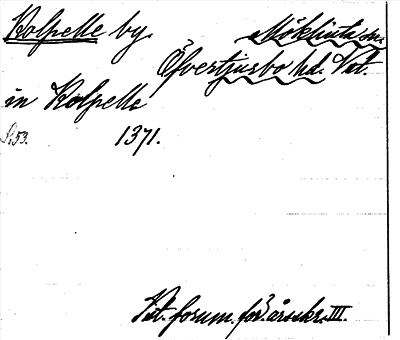 Kolpelle by. Möklinta sn.
Öfvertjurbo hd. Vst.
in Kolpelle
S. 53. 1371.
Vst. forum. för:s årsskr. III.